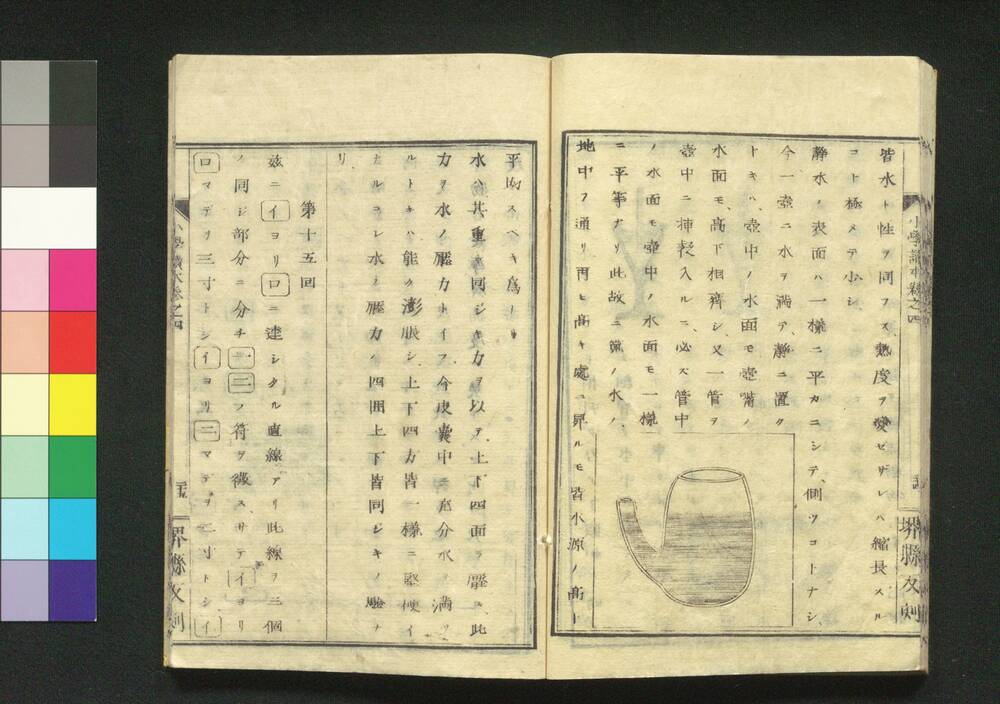 皆水ト性ヲ同フス、熱度ヲ變ゼザレバ縮長スル
コト極メテ小シ、
靜水ノ表面ハ一樣ニ平カニシテ、側ツコトナシ、
今一壺ニ水ヲ滿テ、靜ニ置ク
トキハ、壺中ノ水面モ壺嘴ノ
水面モ、高下相齊シ、又一管ヲ
壺中ニ挿ミ入ルニ、必ズ管中
ノ水面モ壺中ノ水面モ一樣
ニ平等ナリ此故ニ筧ノ水ノ、
地中ヲ通リ再ヒ高キ處ニ昇ルモ皆水源ノ高ト
平均スヘキ為ナリ
水ハ其重キ同ジキ力ヲ以テ、上下四面ヲ壓ス、此
力ヲ水ノ壓力トイフ今皮嚢中ニ充分水ヲ滿ツ
ルトキハ能ク澎脹シ、上下四方皆一樣ニ堅硬イ
タルコレ水ノ壓力ノ四囲上下皆同ジキノ驗ナ
リ
第十五回
玆ニイヨリロニ達シタル直線アリ此線ヲ三個
ノ同ジ部分ニ分チ一二ノ符ヲ微スサテイヨリ
ロマデヲ三寸トシイヨリ二マデヲ二寸トシイ
小學讀本卷之四
堺縣文刻
小學讀本卷之四
堺縣文刻